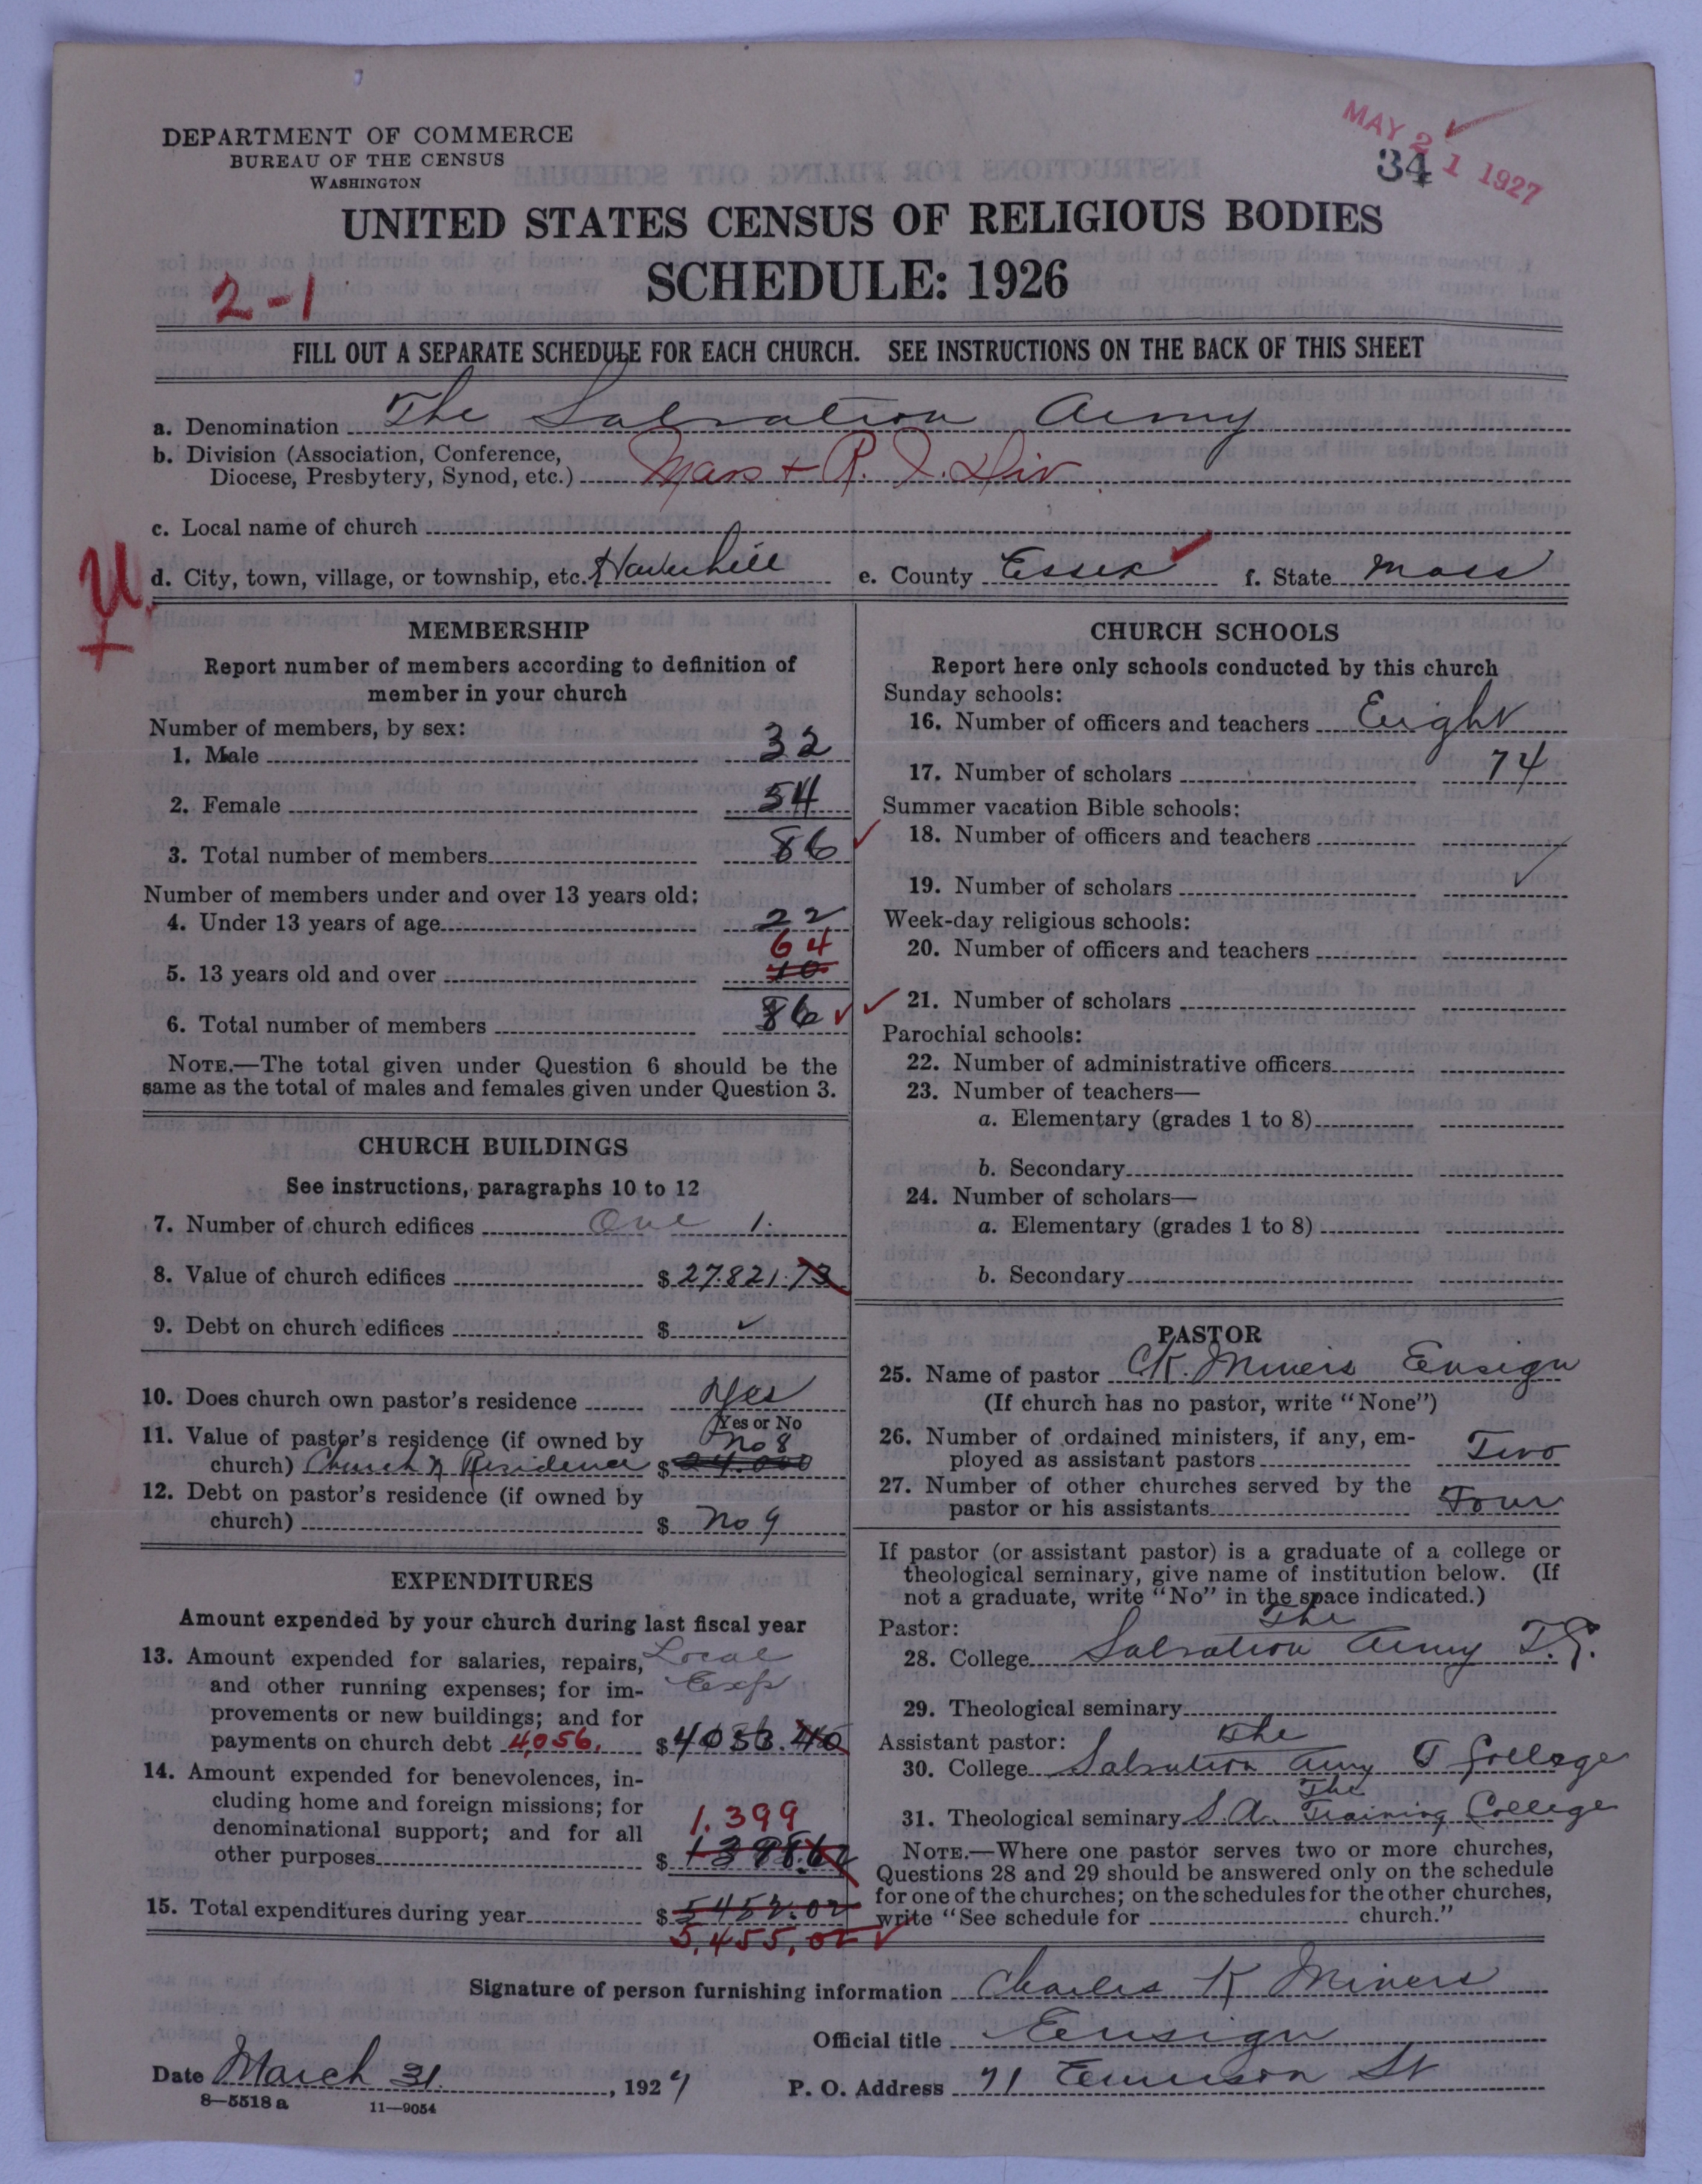 DEPARTMENT OF COMMERCE
BUREAU OF THE CENSUS
WASHINGTON
MAY 21 1927
34
UNITED STATES CENSUS OF RELIGIOUS BODIES
SCHEDULE: 1926
2-1
FILL OUT A SEPARATE SCHEDULE FOR EACH CHURCH. SEE INSTRUCTIONS ON THE BACK OF THIS SHEET
a. Denomination The Salvation Army
b. Division (Association, Conference,
Diocese, Presbytery, Synod, etc.) Mass + R. I. Div.
c. Local name of church
d. City, town, village, or township, etc. Haverhill e. County Essex f. State Mass
MEMBERSHIP
Report number of members according to definition of
member in your church
Number of members, by sex:
1. Male 32
2. Female 54
3. Total number of members 86
Number of members under and over 13 years old:
4. Under 13 years of age 22
64
5. 13 years old and over 10
6. Total number of members 86
NOTE.—The total given under Question 6 should be the
same as the total of males and females given under Question 3.
CHURCH BUILDINGS
See instructions, paragraphs 10 to 12
7. Number of church edifices One 1.
8. Value of church edifices $ 27.821.73
9. Debt on church edifices $
10. Does church own pastor's residence Yes
Yes or No
11. Value of pastor's residence (if owned by No 8
church) Church & Residence $ 24.000
12. Debt on pastor's residence (if owned by
church) $ No 9
EXPENDITURES
Amount expended by your church during last fiscal year
13. Amount expended for salaries, repairs, Local
and other running expenses; for im- Exp
provements or new buildings; and for
payments on church debt 4,056. $ 40 .40
14. Amount expended for benevolences, in-
cluding home and foreign missions; for
denominational support; and for all 1.399
other purposes $ 1398.62
15. Total expenditures during year $ 5452.02
5,455.02
CHURCH SCHOOLS
Report here only schools conducted by this church
Sunday schools:
16. Number of officers and teachers Eight
17. Number of scholars 74
Summer vacation Bible schools:
18. Number of officers and teachers
19. Number of scholars
Week-day religious schools:
20. Number of officers and teachers
21. Number of scholars
Parochial schools:
22. Number of administrative officers
23. Number of teachers—
a. Elementary (grades 1 to 8)
b. Secondary
24. Number of scholars—
a. Elementary (grades 1 to 8)
b. Secondary
PASTOR
25. Name of pastor C.K. Miners Ensign
(If church has no pastor, write "None")
26. Number of ordained ministers, if any, em-
ployed as assistant pastors Two
27. Number of other churches served by the
pastor or his assistants Four
If pastor (or assistant pastor) is a graduate of a college or
theological seminary, give name of institution below. (If
not a graduate, write "No" in the space indicated.)
Pastor: The
28. College Salvation Army T.
29. Theological seminary
Assistant pastor: The
30. College Salvation Army T College
The
31. Theological seminary S.A. Training College
NOTE.—Where one pastor serves two or more churches,
Questions 28 and 29 should be answered only on the schedule
for one of the churches; on the schedules for the other churches,
write "See schedule for church."
Signature of person furnishing information Charles K Miners
Official title Ensign
Date March 31, 1927 P. O. Address 71 Emerson St
8—5518 a 11—9054